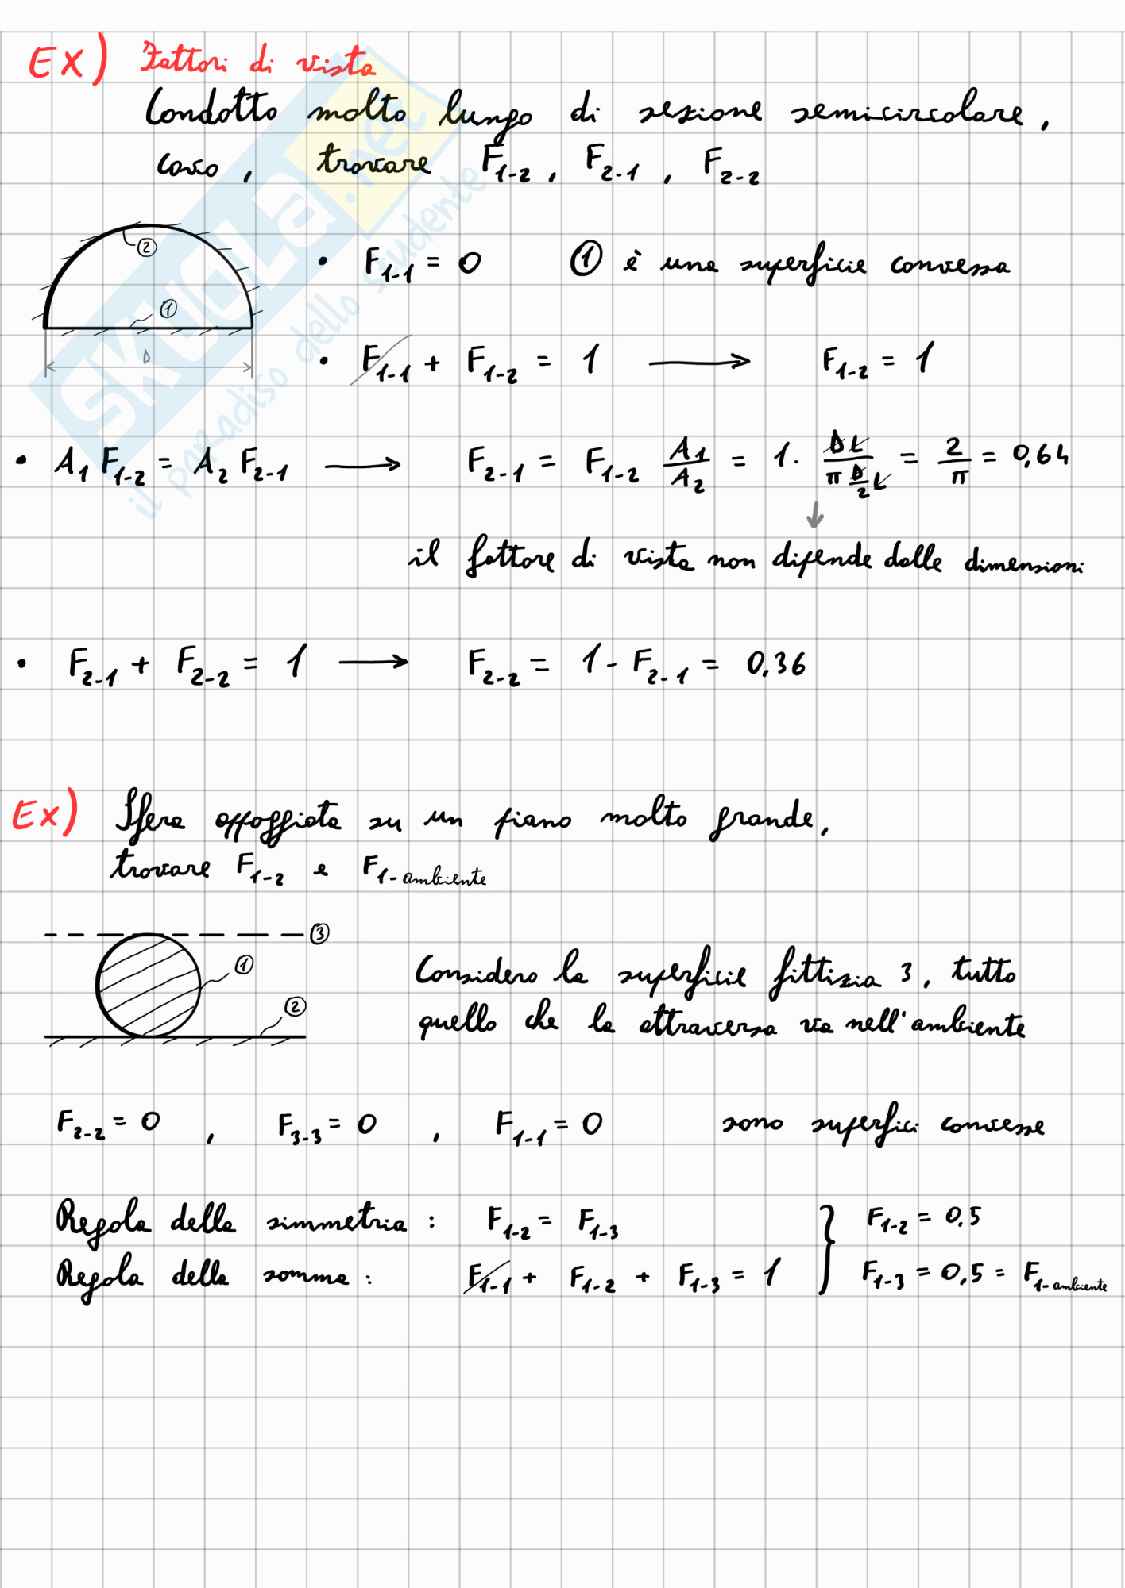 Ex) Fattori di vista
Condotto molto lungo di sezione semicircolare,
cavo, trovare F1-2, F2-1, F2-2
②
①
D
• F1-1 = 0 ① è una superficie convessa
• F1-1 + F1-2 = 1 → F1-2 = 1
• A1 F1-2 = A2 F2-1 → F2-1 = F1-2 A1/A2 = 1 · DL/(π D/2 L) = 2/π = 0,64
↓
il fattore di vista non dipende dalle dimensioni
• F2-1 + F2-2 = 1 → F2-2 = 1 - F2-1 = 0,36
Ex) Sfera appoggiata su un piano molto grande,
trovare F1-2 e F1-ambiente
③
①
②
Considero la superficie fittizia 3, tutto
quello che la attraversa va nell'ambiente
F2-2 = 0 , F3-3 = 0 , F1-1 = 0 sono superfici convesse
Regola della simmetria: F1-2 = F1-3 } F1-2 = 0,5
Regola della somma: F1-1 + F1-2 + F1-3 = 1 } F1-3 = 0,5 = F1-ambiente
SKUOLA.net
il paradiso dello studente